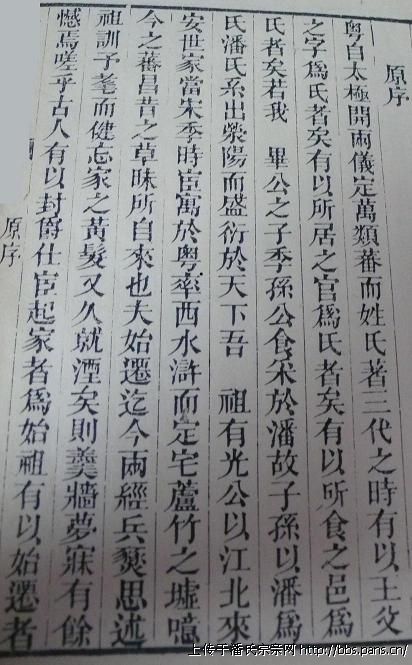 原序
粤自太極開兩儀定萬類蕃而姓氏著三代之時有以王父
之字爲氏者矣有以所居之官爲氏者矣有以所食之邑爲
氏者矣若我 畢公之子季孫公食采於潘故子孫以潘爲
氏潘氏系出滎陽而盛衍於天下吾 祖有光公以江北來
安世家當宋季時宦寓於粤率西水滸而定宅蘆竹之墟噫
今之蕃昌昔之草昧所自來也夫始遷迄今兩經兵燹思述
祖訓予耄而健忘家之黃髮又久就湮矣則羹牆夢寐有餘
憾焉嗟乎古人有以封爵仕宦起家者爲始祖有以始遷者
原序
上传于潘氏宗亲网 http://bbs.pans.cn/